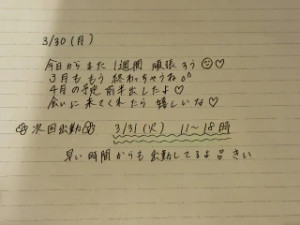 3/30(月)
今日からまた1週間 頑張ろう☺♡
3月ももう終わっちゃうね
4月の予定 前半出したよ♡
会いに来てくれたら嬉しいな♡
次回出勤 3/31(火) 11〜18時
早い時間からも出勤してるよ